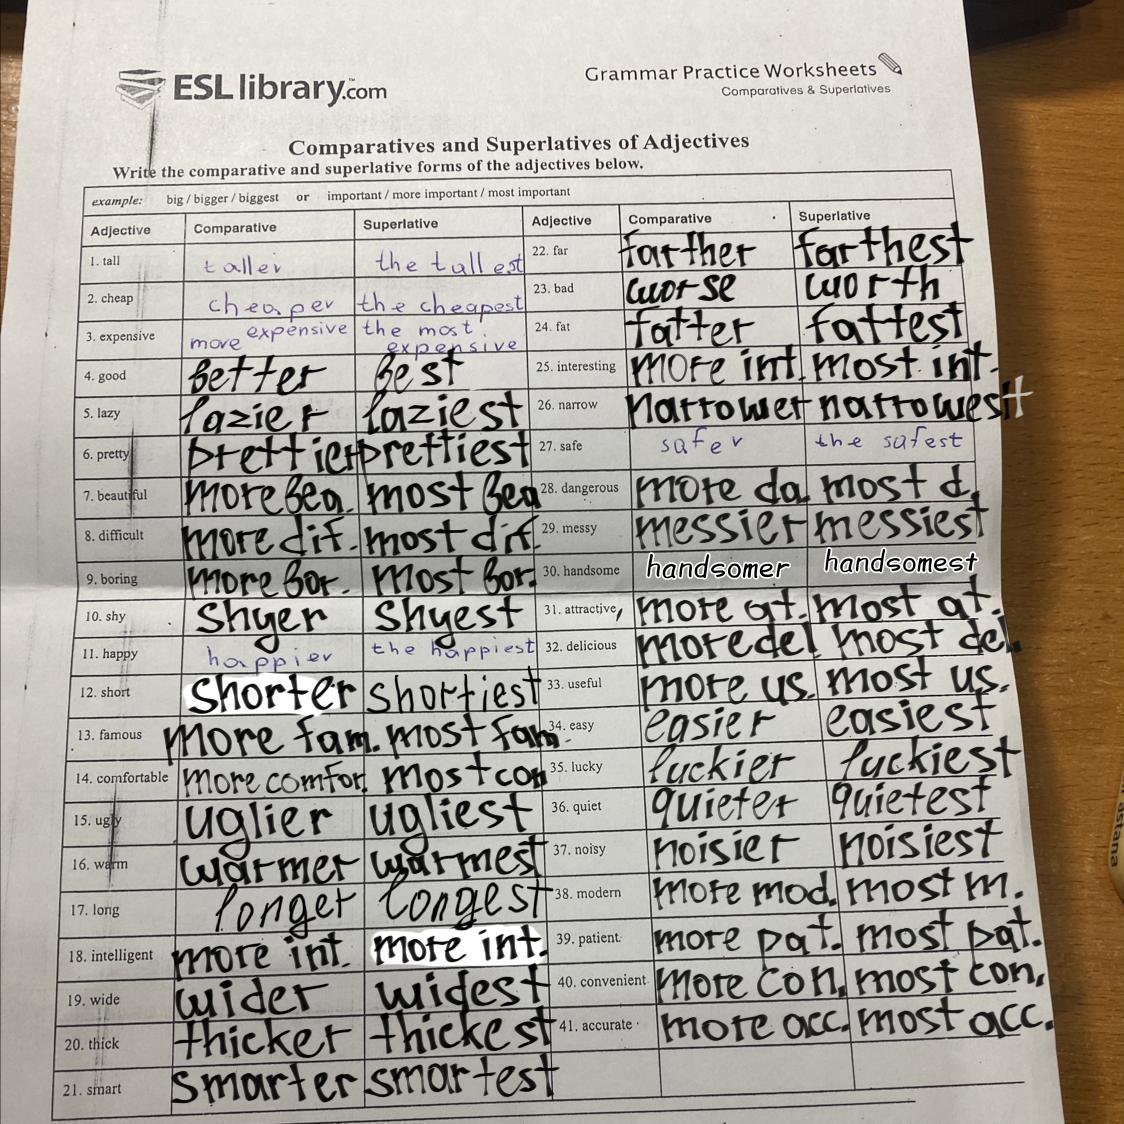 ESL library.com
Grammar Practice Worksheets
Comparatives & Superlatives
Comparatives and Superlatives of Adjectives
Write the comparative and superlative forms of the adjectives below.
example: big / bigger / biggest or important / more important / most important
Adjective Comparative Superlative Adjective Comparative Superlative
1. tall taller the tallest 22. far farther farthest
2. cheap cheaper the cheapest 23. bad worse worth
3. expensive more expensive the most expensive 24. fat fatter fattest
4. good better best 25. interesting more int. most int.
5. lazy lazier laziest 26. narrow narrower narrowest
6. pretty prettier prettiest 27. safe safer the safest
7. beautiful more bea. most bea 28. dangerous more da most d.
8. difficult more dif. most dif. 29. messy messier messiest
9. boring more bor. most bor. 30. handsome handsomer handsomest
10. shy shyer shyest 31. attractive, more at. most at.
11. happy happier the happiest 32. delicious more del most del.
12. short shorter shortiest 33. useful more us. most us.
13. famous more fam. most fam. 34. easy easier easiest
14. comfortable more comfor. most com 35. lucky luckier luckiest
15. ugly uglier ugliest 36. quiet quieter quietest
16. warm warmer warmest 37. noisy noisier noisiest
17. long longer longest 38. modern more mod. most m.
18. intelligent more int. more int. 39. patient more pat. most pat.
19. wide wider widest 40. convenient more con. most con.
20. thick thicker thickest 41. accurate more acc. most acc.
21. smart smarter smartest
astana